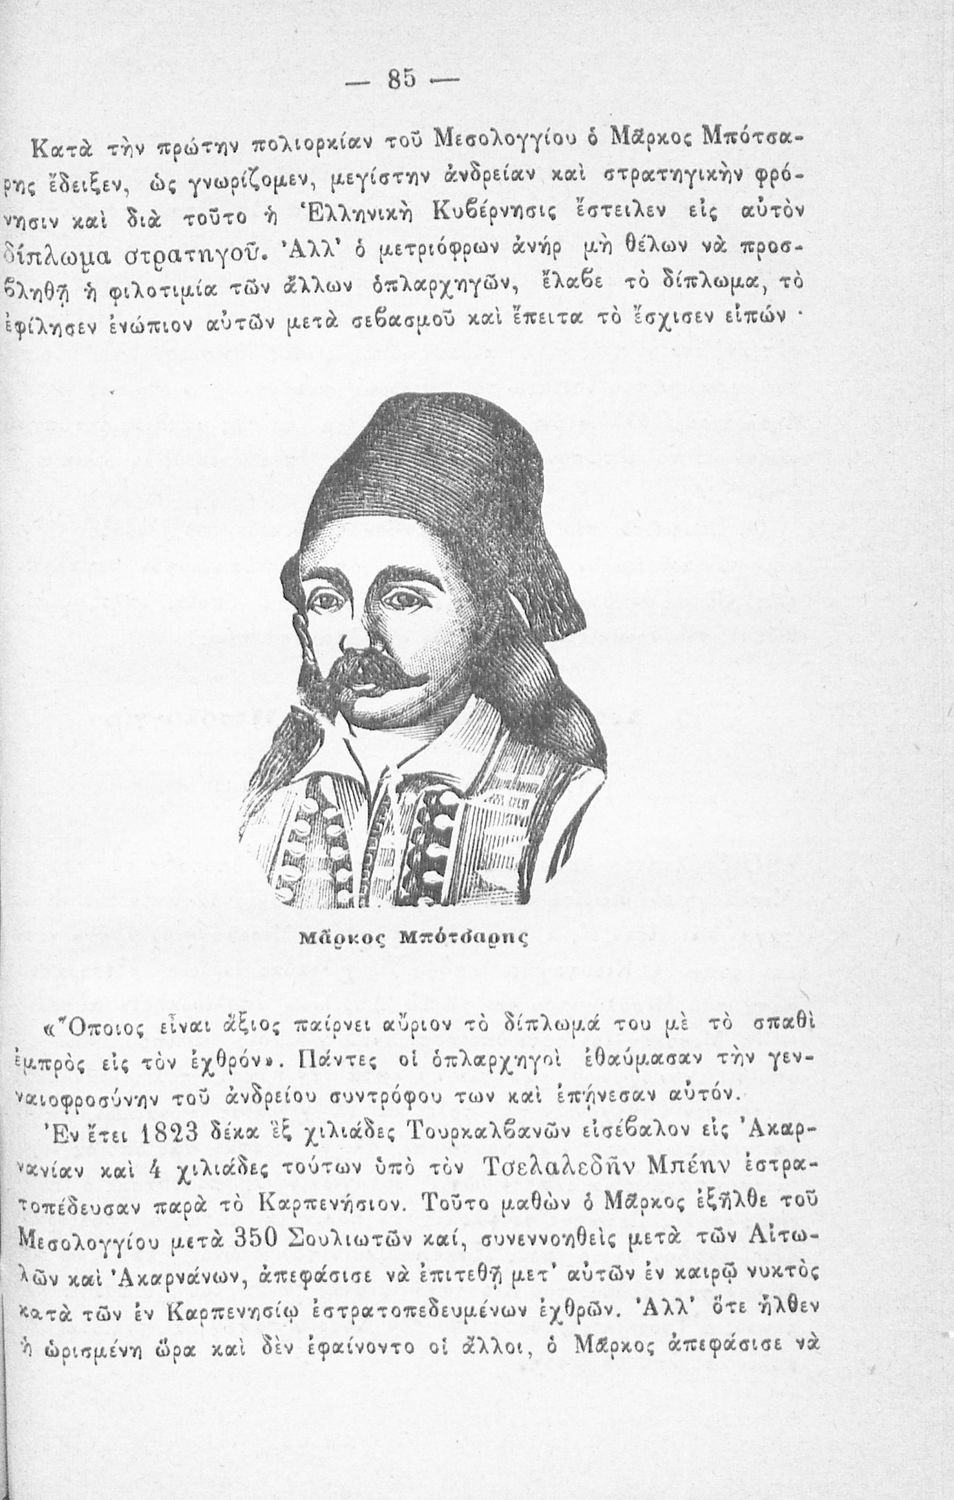 — 85 —
Κατὰ τὴν πρώτην πολιορκίαν τοῦ Μεσολογγίου ὁ Μᾶρκος Μπότσα-
ρης ἔδειξεν, ὡς γνωρίζομεν, μεγίστην ἀνδρείαν καὶ στρατηγικὴν φρό-
νησιν καὶ διὰ τοῦτο ἡ Ἑλληνικὴ Κυβέρνησις ἔστειλεν εἰς αὐτὸν
δίπλωμα στρατηγοῦ. Ἀλλ' ὁ μετριόφρων ἀνήρ μὴ θέλων νὰ προσ-
βληθῇ ἡ φιλοτιμία τῶν ἄλλων ὁπλαρχηγῶν, ἔλαβε τὸ δίπλωμα, τὸ
ἐφίλησεν ἐνώπιον αὐτῶν μετὰ σεβασμοῦ καὶ ἔπειτα τὸ ἔσχισεν εἰπών ·
Μᾶρκος Μπότσαρης
«Ὅποιος εἶναι ἄξιος παίρνει αὔριον τὸ δίπλωμά του μὲ τὸ σπαθὶ
ἐμπρὸς εἰς τὸν ἐχθρόν». Πάντες οἱ ὁπλαρχηγοὶ ἐθαύμασαν τὴν γεν-
ναιοφροσύνην τοῦ ἀνδρείου συντρόφου των καὶ ἐπῄνεσαν αὐτόν.
Ἐν ἔτει 1823 δέκα ἓξ χιλιάδες Τουρκαλβανῶν εἰσέβαλον εἰς Ἀκαρ-
νανίαν καὶ 4 χιλιάδες τούτων ὑπὸ τὸν Τσελαλεδῆν Μπέην ἐστρα-
τοπέδευσαν παρὰ τὸ Καρπενήσιον. Τοῦτο μαθὼν ὁ Μᾶρκος ἐξῆλθε τοῦ
Μεσολογγίου μετὰ 350 Σουλιωτῶν καί, συνεννοηθεὶς μετὰ τῶν Αἰτω-
λῶν καὶ Ἀκαρνάνων, ἀπεφάσισε νὰ ἐπιτεθῇ μετ' αὐτῶν ἐν καιρῷ νυκτὸς
κατὰ τῶν ἐν Καρπενησίῳ ἐστρατοπεδευμένων ἐχθρῶν. Ἀλλ' ὅτε ἦλθεν
ἡ ὡρισμένη ὥρα καὶ δὲν ἐφαίνοντο οἱ ἄλλοι, ὁ Μᾶρκος ἀπεφάσισε νὰ